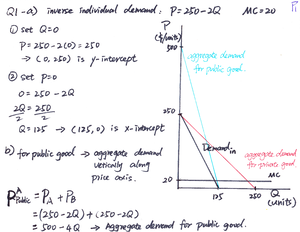 Q1-a) inverse individual demand: P=250-2Q MC=20
① set Q=0
P=250-2(0)=250
→ (0,250) is y-intercept
② set p=0
0=250-2Q
2Q=250
2 2
Q=125 → (125,0) is x-intercept
b) for public good → aggregate demand
vertically along
price axis.
P^A_Public = P_A + P_B
=(250-2Q)+(250-2Q)
=500-4Q → Aggregate demand for public good.
P
($/units)
500
aggregate demand
for public good.
250
Demand_in
aggregate demand
for private good
MC
20
125
250
Q
(units)